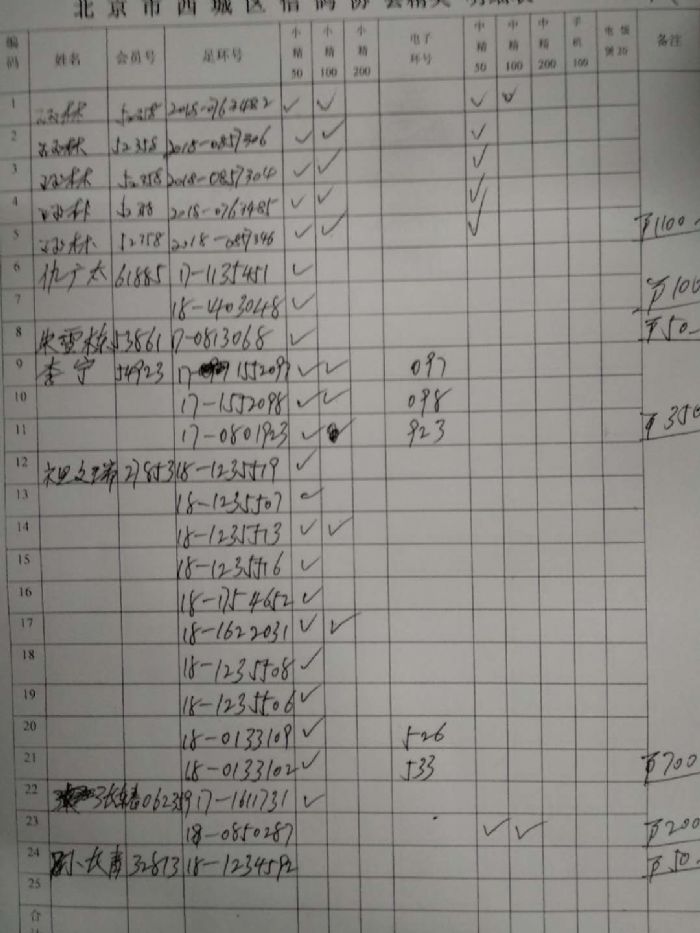 北京市西城区信鸽协会
编码 姓名 会员号 足环号 小精50 小精100 小精200 电子环号 中精50 中精100 中精200 手机100 电饭煲20 备注
1 52358 2018-0767482 ✓ ✓ ✓ ✓
2 52358 2018-0857306 ✓ ✓ ✓
3 52358 2018-0857304 ✓ ✓ ✓
4 2018-0767485 ✓ ✓ ✓
5 52358 2018-0857346 ✓ ✓ ✓ ¥1100
6 仇广太 61885 17-1135451 ✓
7 18-1403048 ✓ ¥100
8 53861 17-0813068 ✓ ¥50
9 李宁 54923 17-1552097 ✓ ✓ 097
10 17-1552098 ✓ ✓ 098
11 17-0801923 ✓ 923 ¥350
12 27853 18-1235519 ✓
13 18-1235507 ✓
14 18-1235513 ✓ ✓
15 18-1235516 ✓
16 18-1754652 ✓
17 18-1622031 ✓ ✓
18 18-1235508 ✓
19 18-1235506 ✓
20 18-0133109 ✓ 526
21 18-0133102 ✓ 533 ¥700
22 17-1611731 ✓
23 18-0850287 ✓ ✓ ¥200
24 孙长青 32813 18-1234592 ¥50
25
合